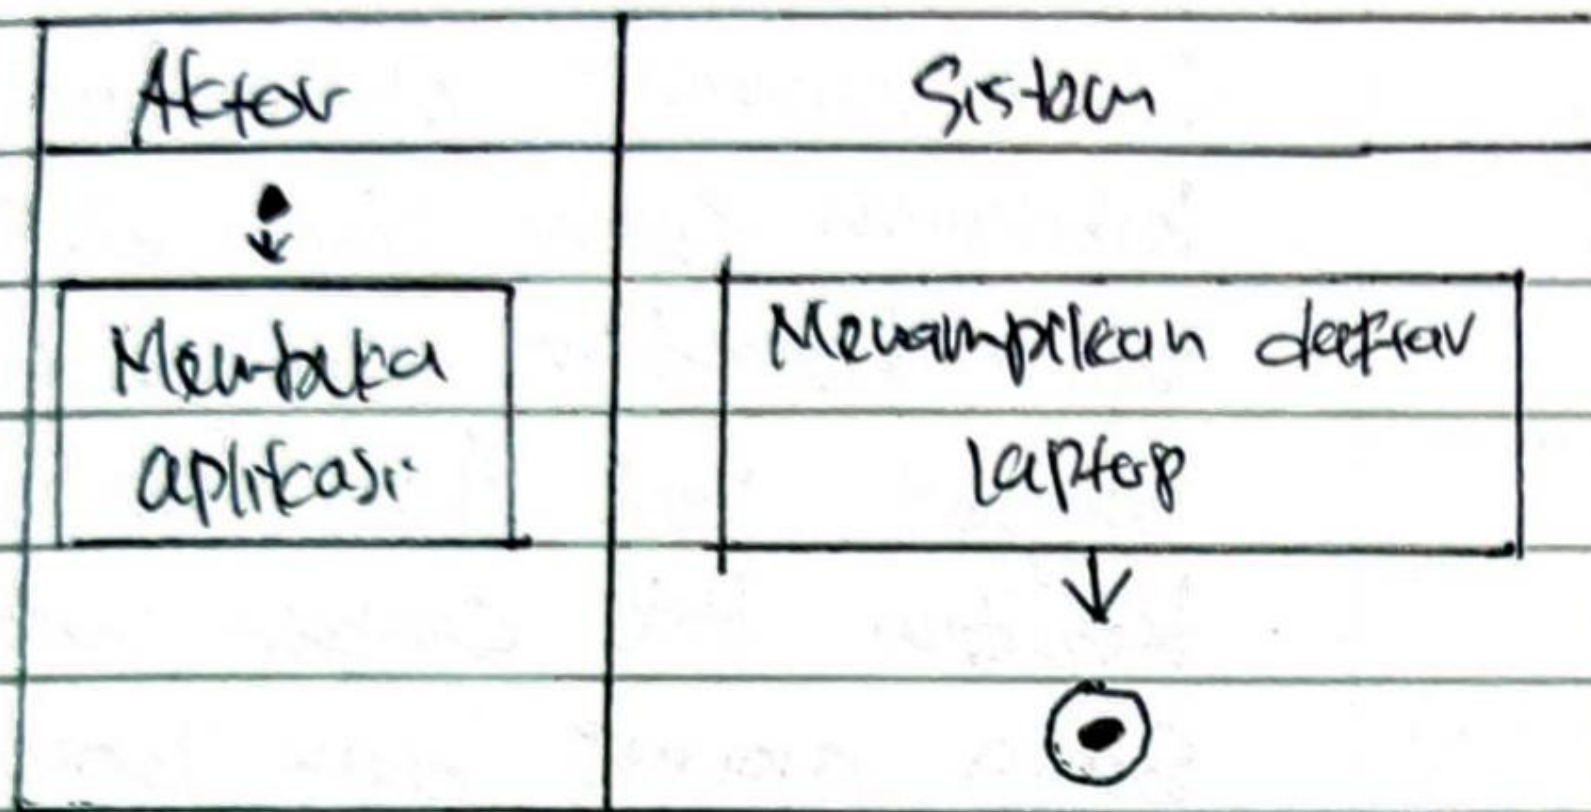 Aktor
Sistem
Membuka
aplikasi
Menampilkan daftar
laptop